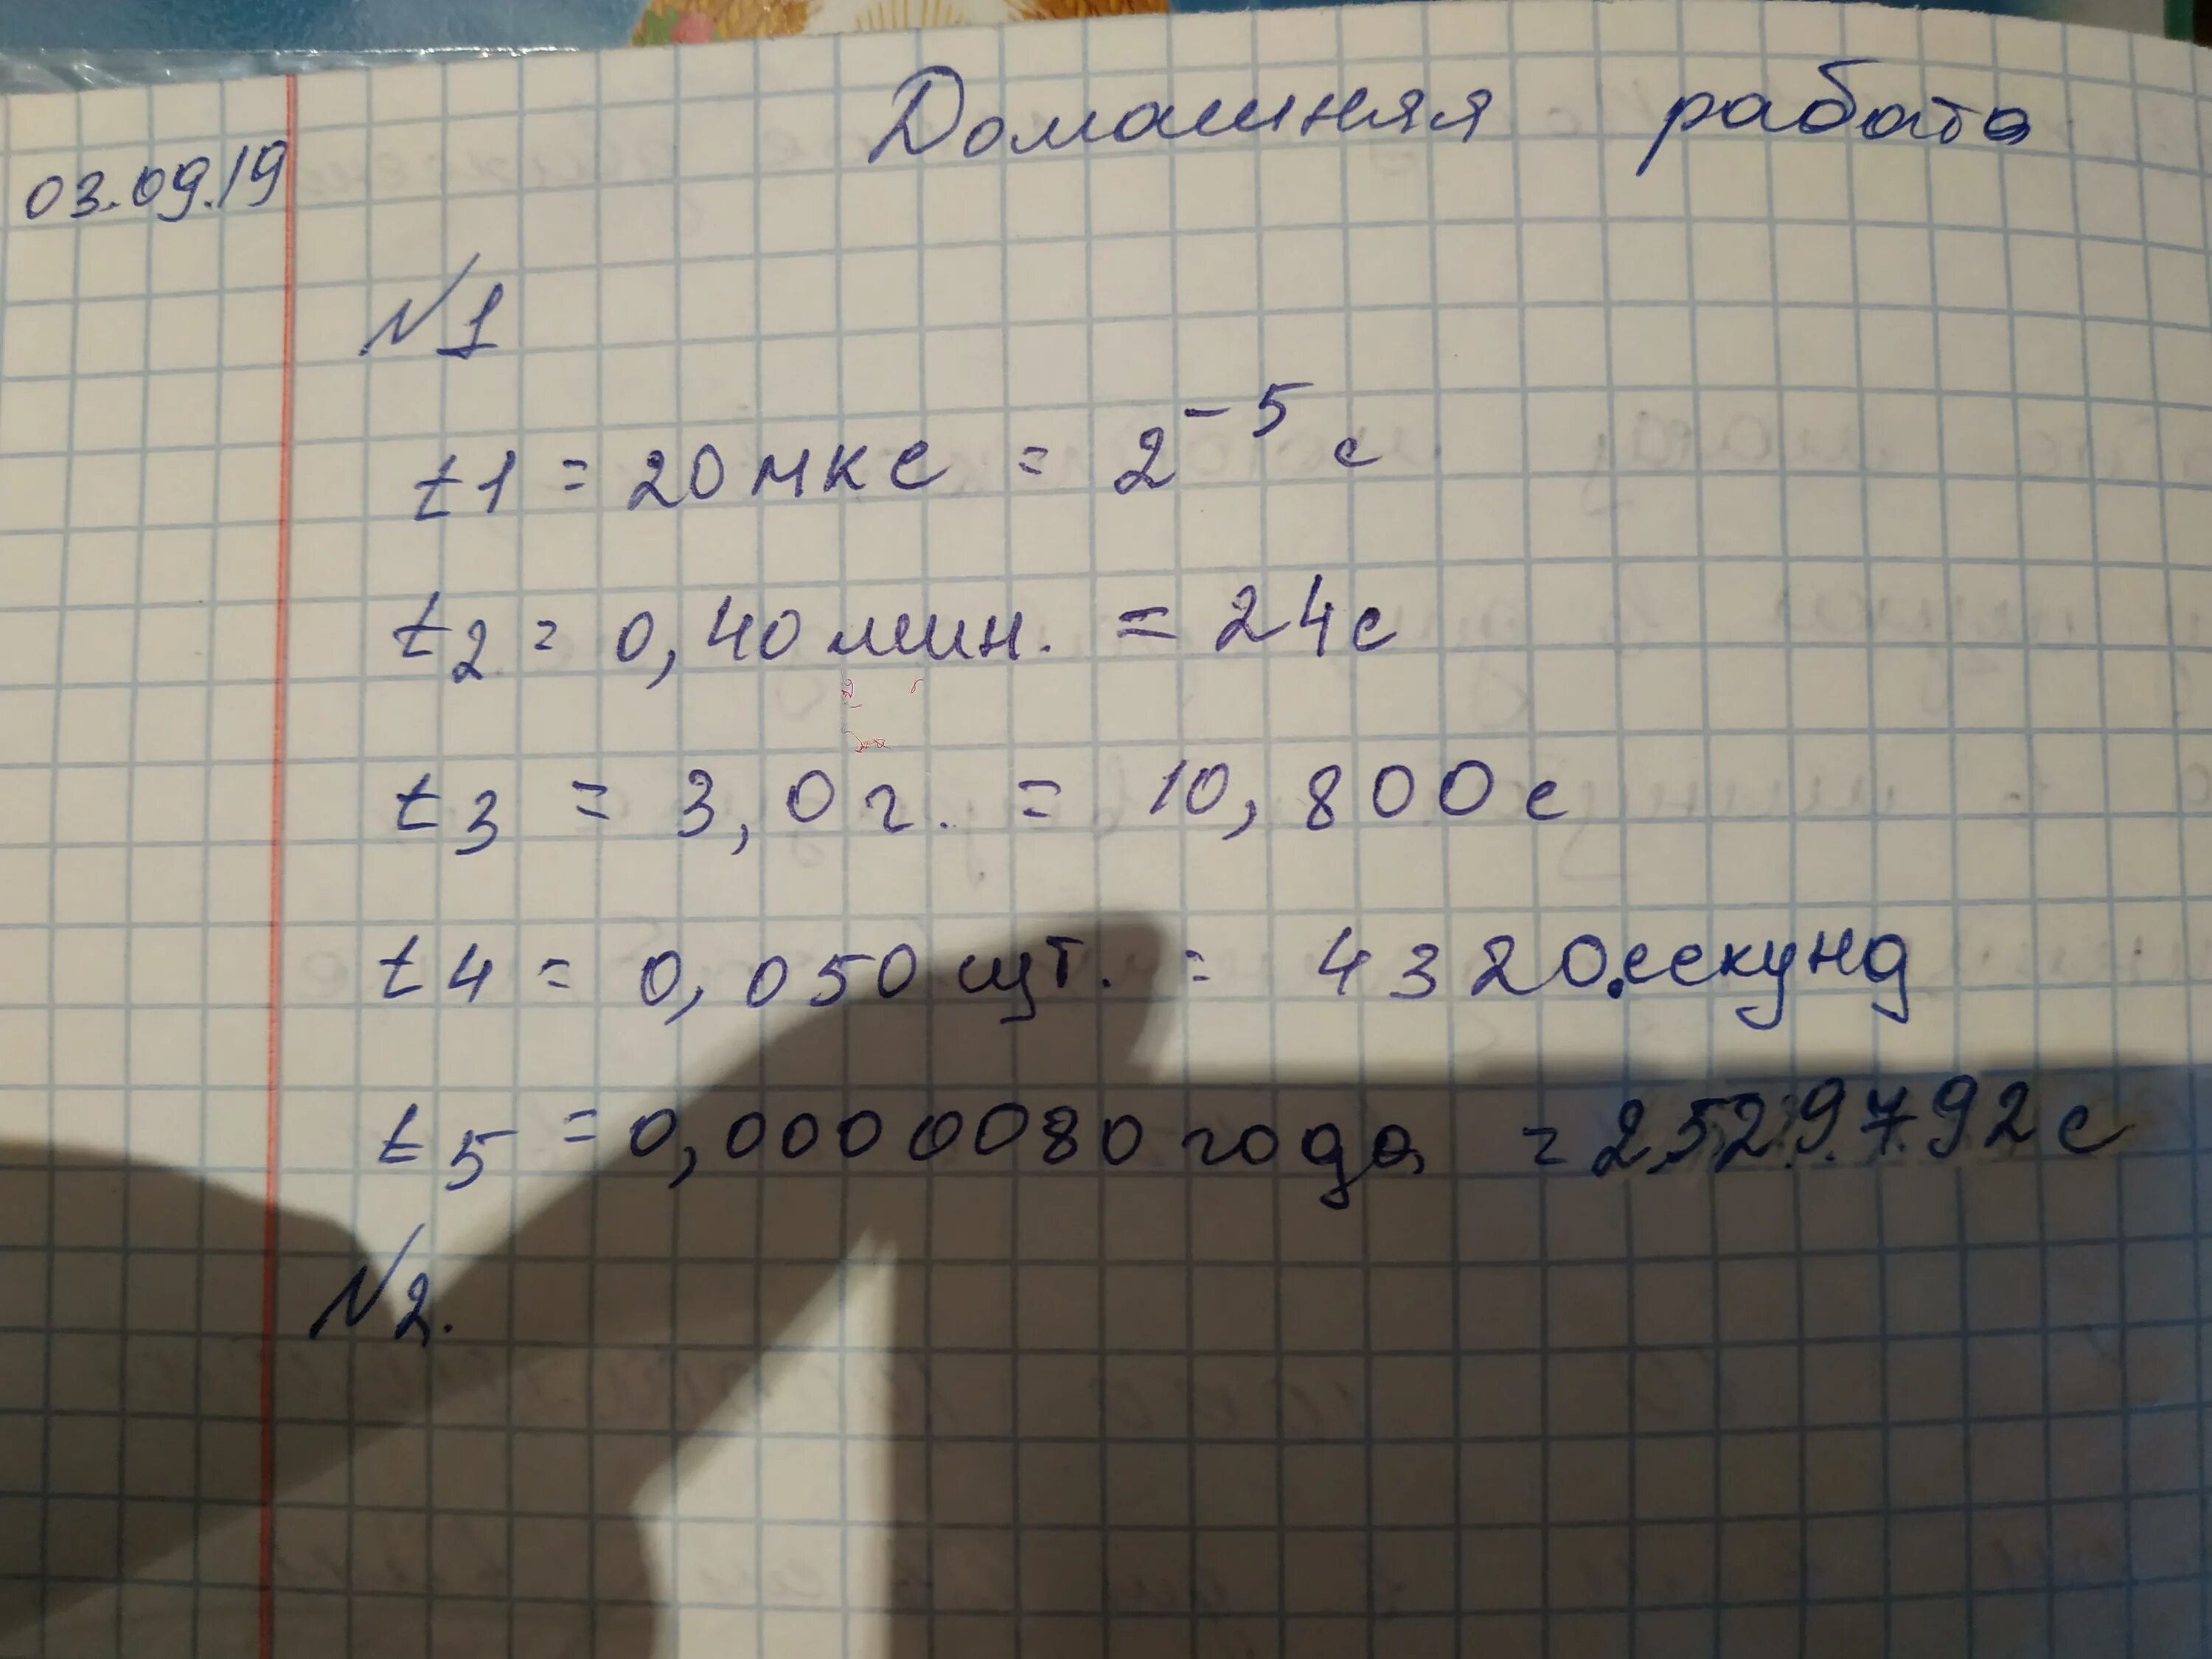 Домашняя работа
03.09.19
№1
t1 = 20 мкс = 2⁻⁵ с
t2 = 0,40 мин. = 24с
t3 = 3,0 г. = 10,800 с
t4 = 0,050 сут. = 4320.секунд
t5 = 0,0000080 года = 252.9.7.92 с
№2.